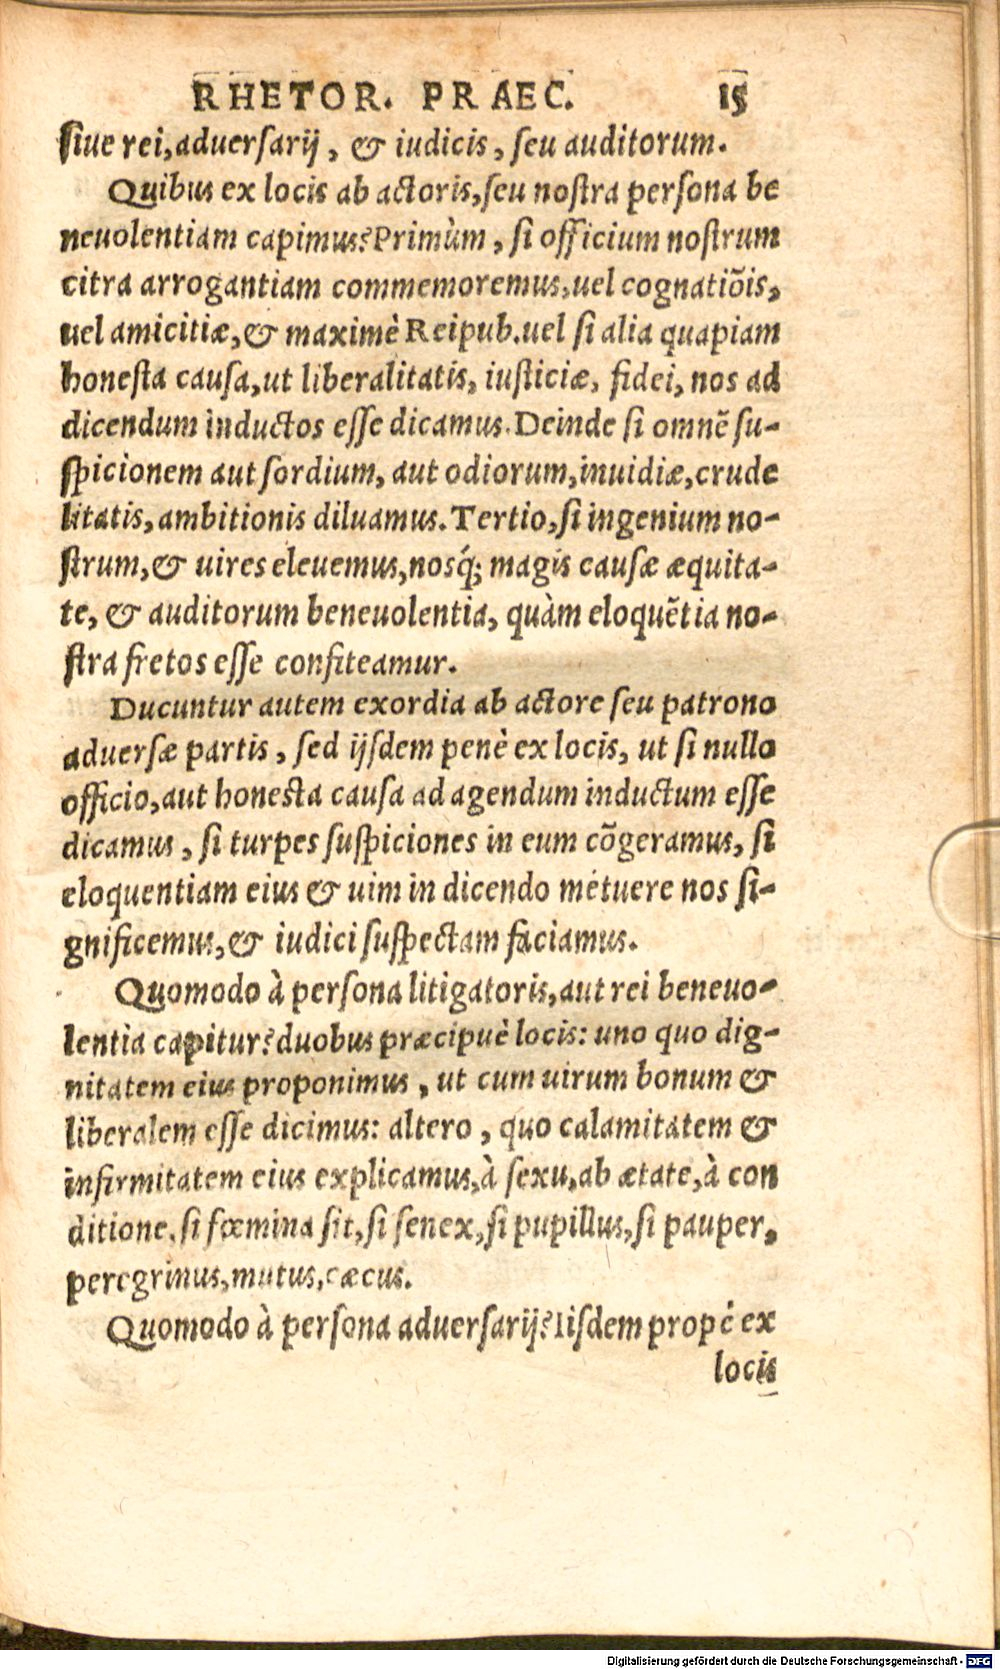 RHETOR. PRAEC. 15
siue rei, aduersarij, & iudicis, seu auditorum.
Quibus ex locis ab actoris, seu nostra persona be
neuolentiam capimus? Primùm, si officium nostrum
citra arrogantiam commemoremus, uel cognatiõis,
uel amicitiæ, & maximè Reipub. uel si alia quapiam
honesta causa, ut liberalitatis, iusticiæ, fidei, nos ad
dicendum inductos esse dicamus. Deinde si omnẽ su-
spicionem aut sordium, aut odiorum, inuidiæ, crude
litatis, ambitionis diluamus. Tertio, si ingenium no-
strum, & uires eleuemus, nosq́; magis causæ æquita-
te, & auditorum beneuolentia, quàm eloquẽtia no-
stra fretos esse confiteamur.
Ducuntur autem exordia ab actore seu patrono
aduersæ partis, sed ijsdem penè ex locis, ut si nullo
officio, aut honesta causa ad agendum inductum esse
dicamus, si turpes suspiciones in eum cõgeramus, si
eloquentiam eius & uim in dicendo metuere nos si-
gnificemus, & iudici suspectam faciamus.
Quomodo à persona litigatoris, aut rei beneuo-
lentia capitur? duobus præcipuè locis: uno quo dig-
nitatem eius proponimus, ut cum uirum bonum &
liberalem esse dicimus: altero, quo calamitatem &
infirmitatem eius explicamus, à sexu, ab ætate, à con
ditione, si fœmina sit, si senex, si pupillus, si pauper,
peregrinus, mutus, cæcus.
Quomodo à persona aduersarij? Iisdem propè ex
locis
Digitalisierung gefördert durch die Deutsche Forschungsgemeinschaft - DFG